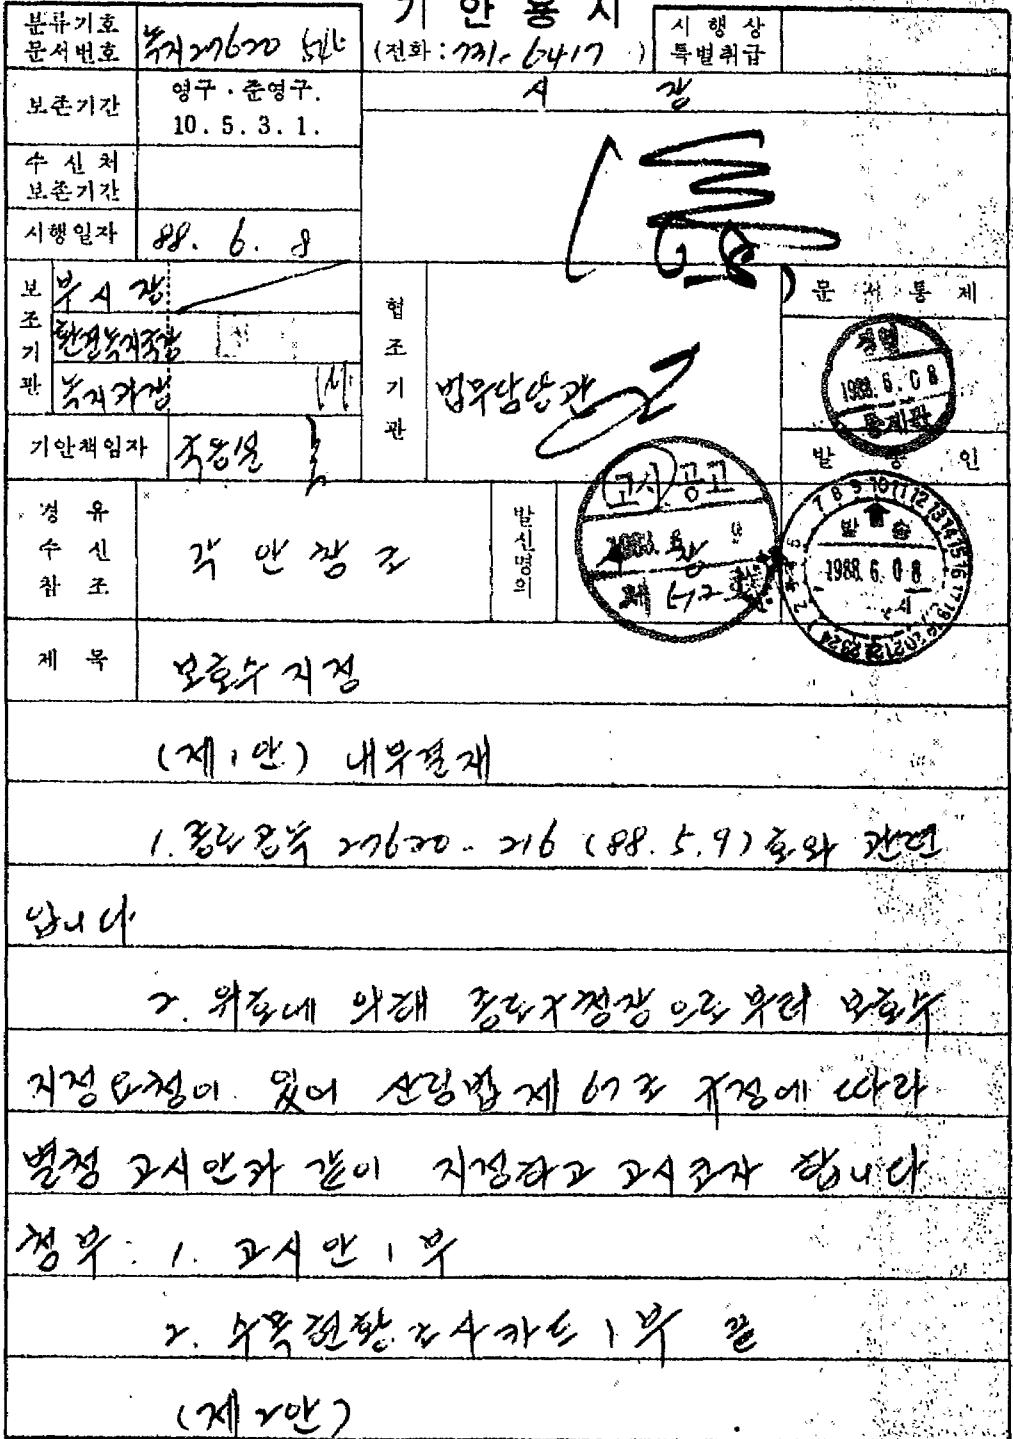 기 안 용 지
분류기호
문서번호
녹지27620
(전화 : 731-6417 )
시 행 상
특별취급
보존기간
영구 · 준영구.
10. 5. 3. 1.
시 장
수 신 처
보존기간
시행일자
88. 6. 8
보조기관
부시장
환경녹지국장
녹지과장
협조기관
법무담당관
문 서 통 제
1988. 6. 08
통제관
기안책임자
발 송 인
경 유
수 신
참 조
각 안 참 조
발신명의
시 장
고시 공고
1988.
제
발 송
1988. 6. 08
제 목
보호수 지정
(제1안) 내부결재
1. 종로공녹 27620-216 (88.5.9)호와 관련
입니다
2. 위호에 의해 종로구청장으로부터 보호수
지정요청이 있어 산림법 제67조 규정에 따라
별첨 고시안과 같이 지정하고 고시코자 합니다
첨부 : 1. 고시안 1부
2. 수목현황조사카드 1부 끝
(제2안)